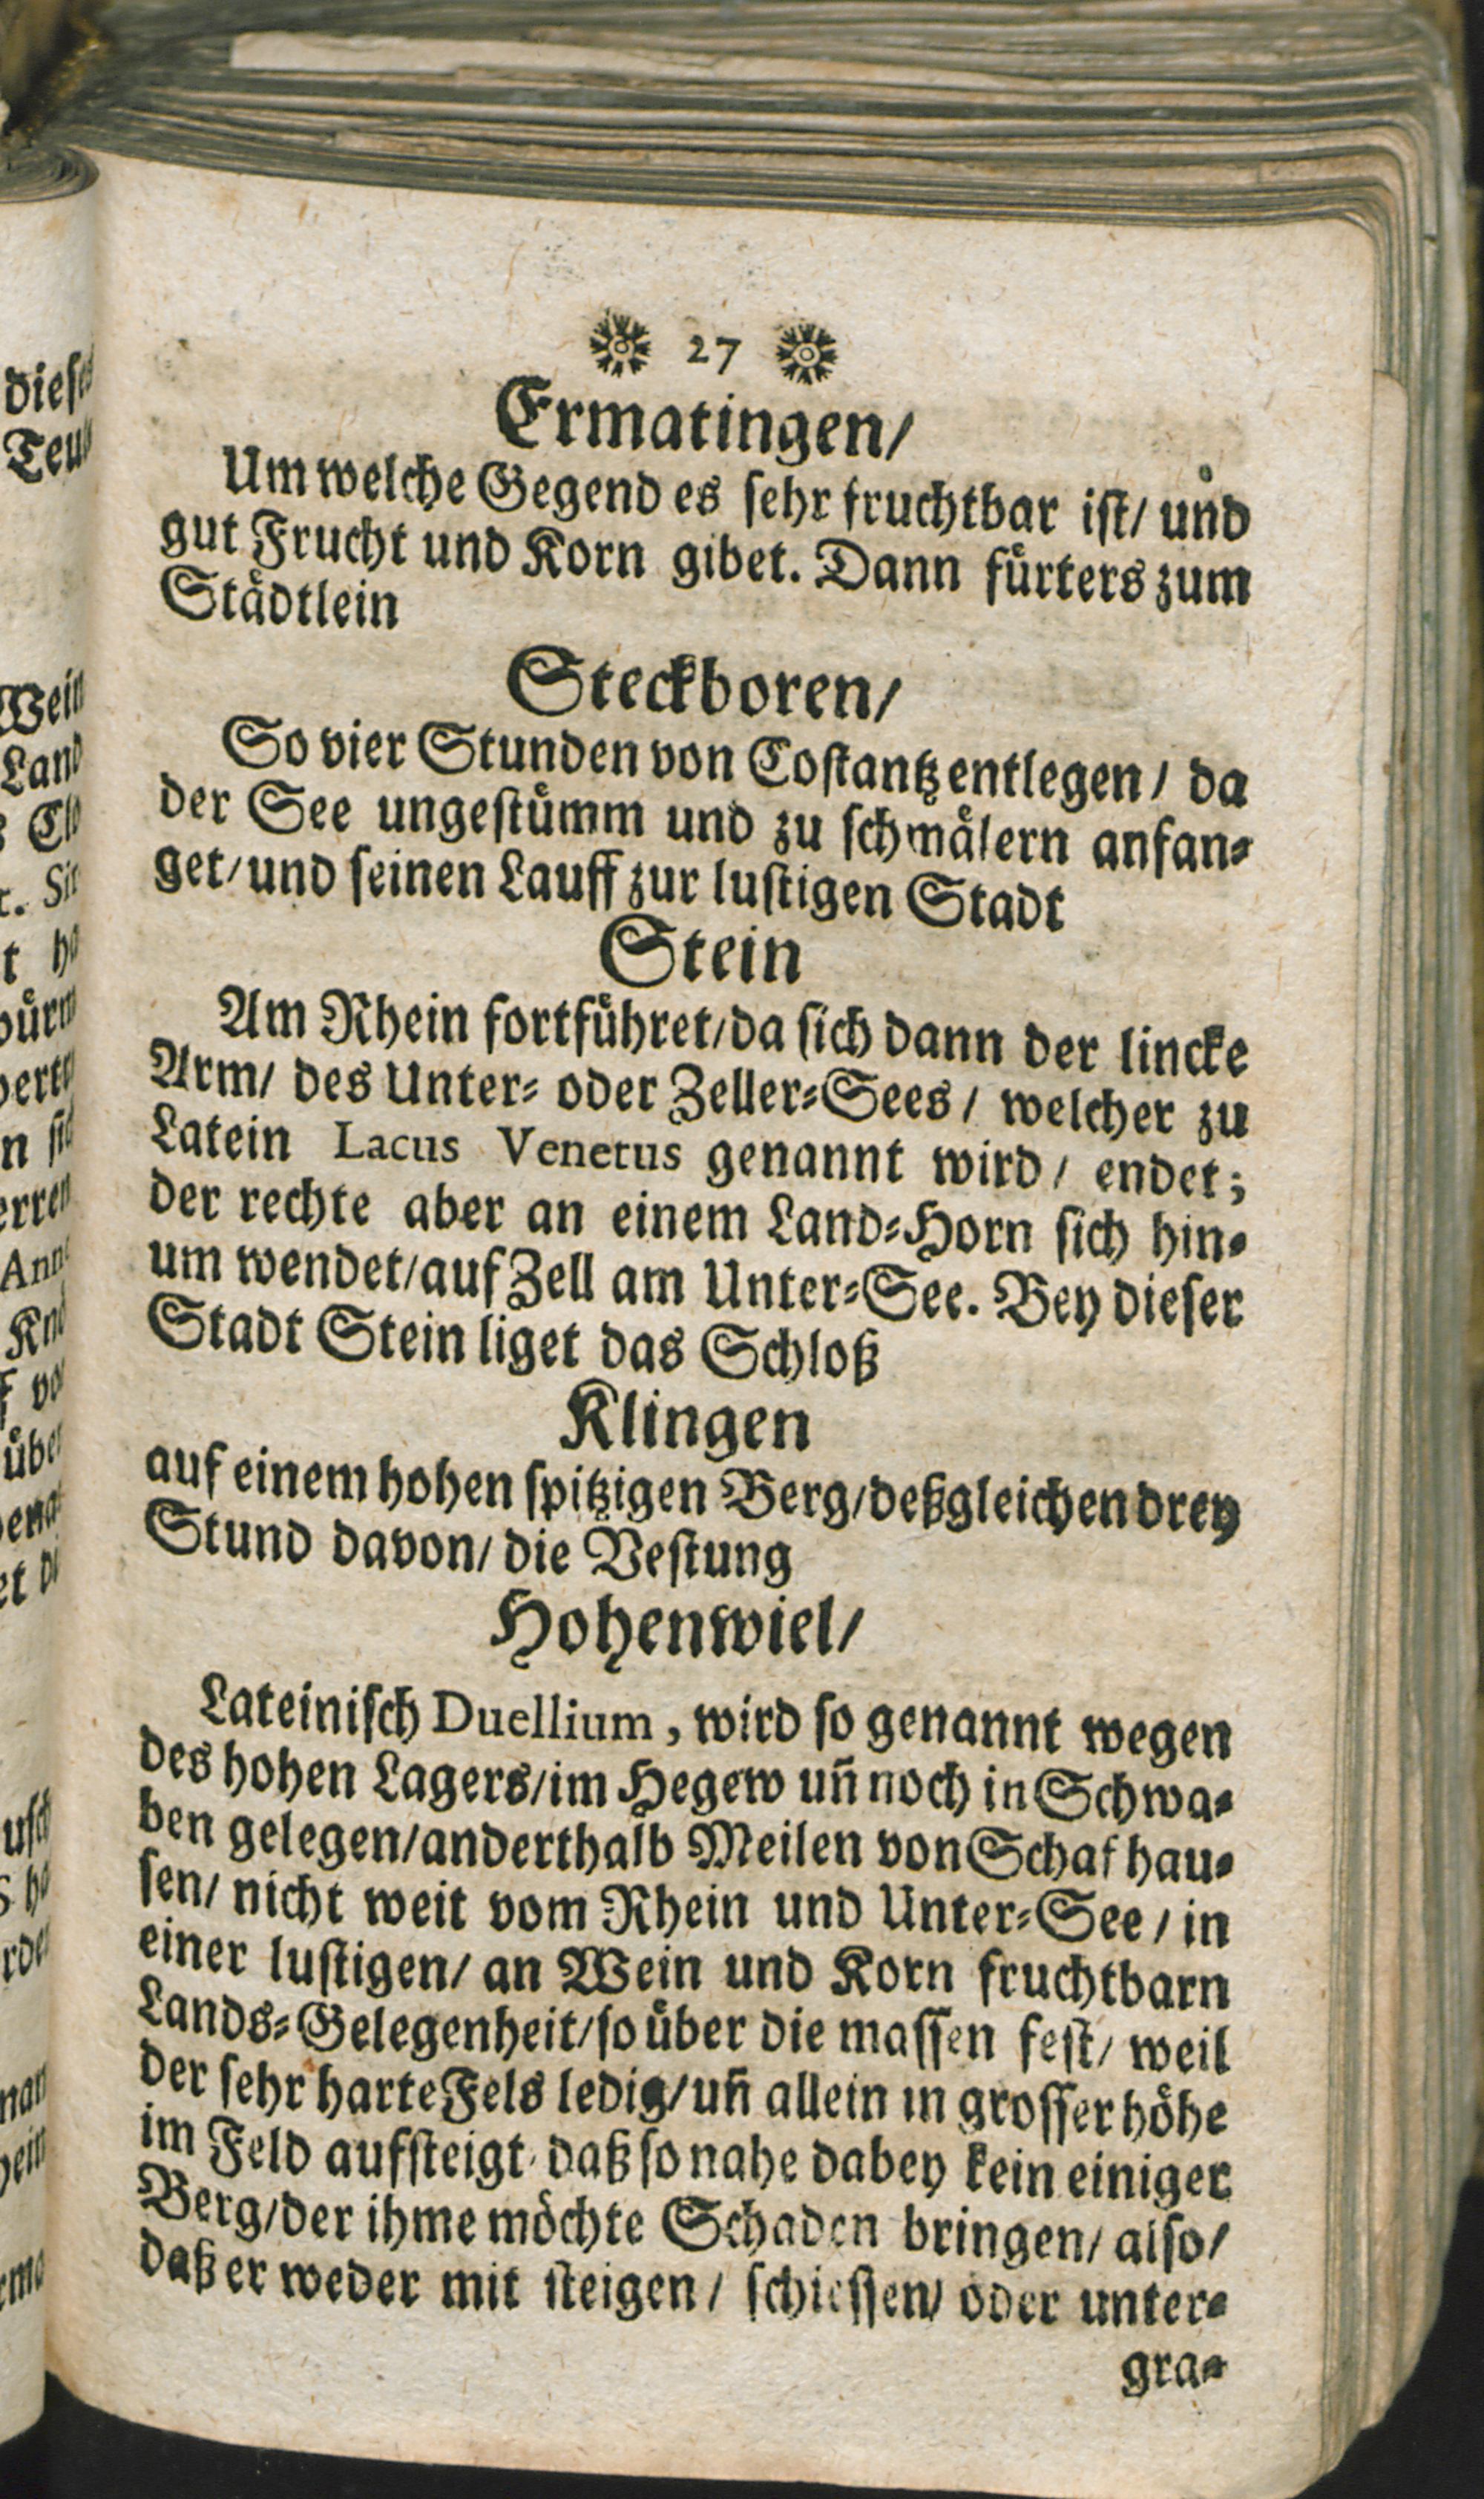 27
Ermatingen/
Um welche Gegend es sehr fruchtbar ist/ und
gut Frucht und Korn gibet. Dann fürters zum
Städtlein
Steckboren/
So vier Stunden von Costantz entlegen / da
der See ungestümm und zu schmälern anfan-
get/ und seinen Lauff zur lustigen Stadt
Stein
Am Rhein fortführet/ da sich dann der lincke
Arm/ des Unter- oder Zeller-Sees / welcher zu
Latein Lacus Venetus genannt wird / endet;
der rechte aber an einem Land-Horn sich hin-
um wendet/ auf Zell am Unter-See. Bey dieser
Stadt Stein liget das Schloß
Klingen
auf einem hohen spitzigen Berg/ deßgleichen drey
Stund davon/ die Vestung
Hohenwiel/
Lateinisch Duellium, wird so genannt wegen
des hohen Lagers/ im Hegew uñ noch in Schwa-
ben gelegen/ anderthalb Meilen von Schafhau-
sen/ nicht weit vom Rhein und Unter-See / in
einer lustigen/ an Wein und Korn fruchtbarn
Lands-Gelegenheit/ so über die massen fest/ weil
der sehr harte Fels ledig/ uñ allein in grosser höhe
im Feld aufsteigt, daß so nahe dabey kein einiger
Berg/ der ihme möchte Schaden bringen/ also/
daß er weder mit steigen / schiessen/ oder unter-
gra-